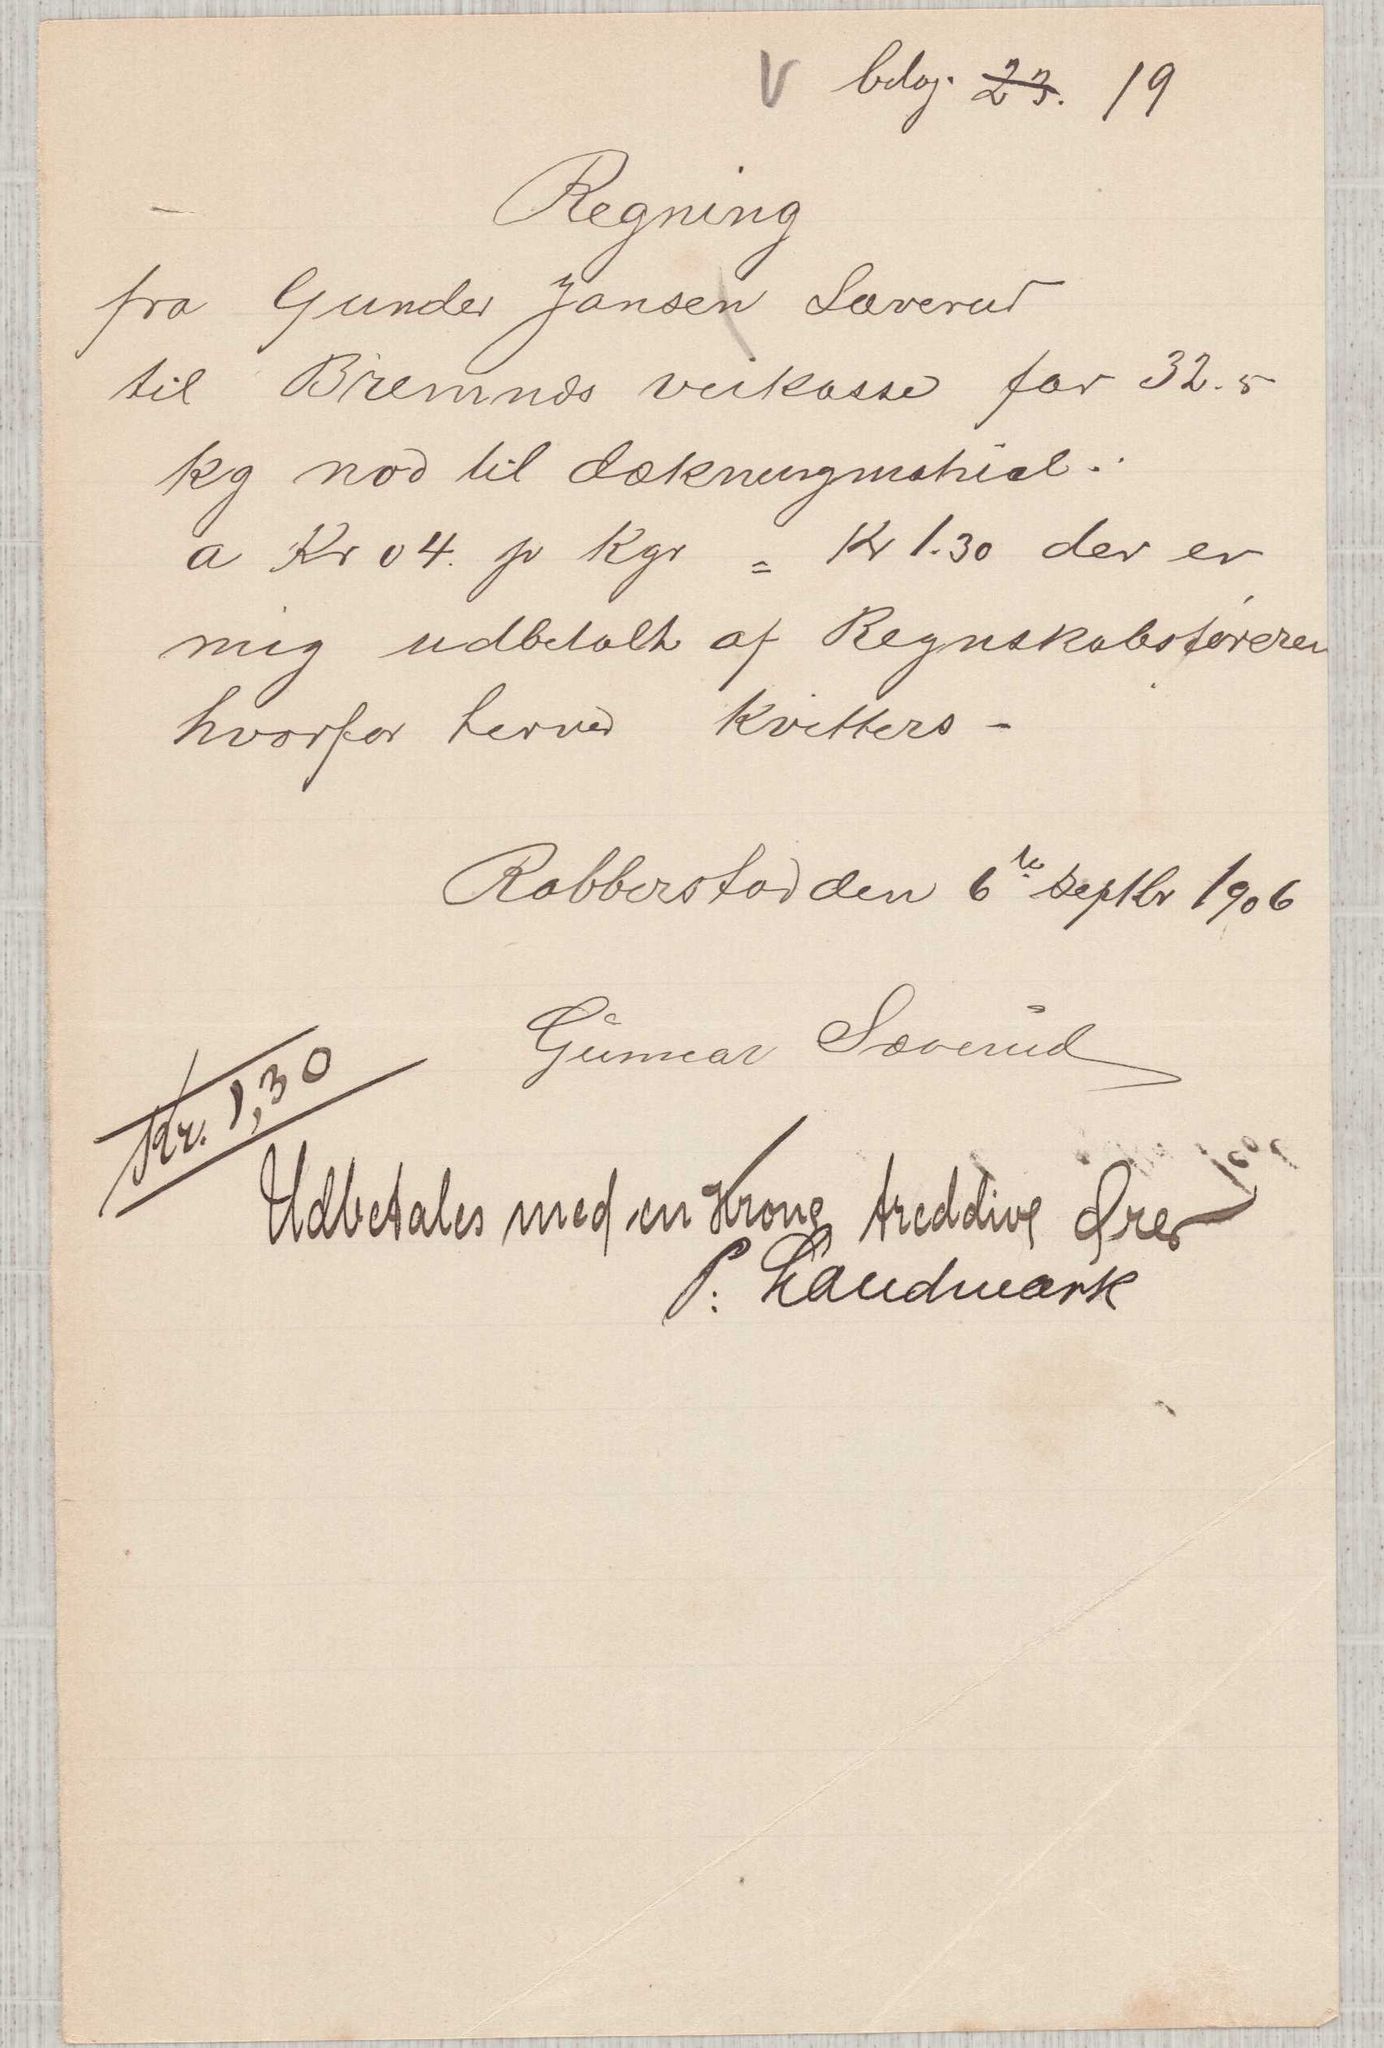 V bilag. 23. 19
Regning
fra Gunder Jansen Sæverud
til Bremnds veikasse for 32.5
kg nod til dækningmatrial.
a Kr 04. pr kgr = Kr 1.30 der er
mig udbetalt af Regnskabsføreren
hvorfor herved kvitters -
Robberstad den 6te septbr 1906
Gunnar Sæverud
Kr. 1,30
Udbetales med en Krone treddive Ører
P. Landmark